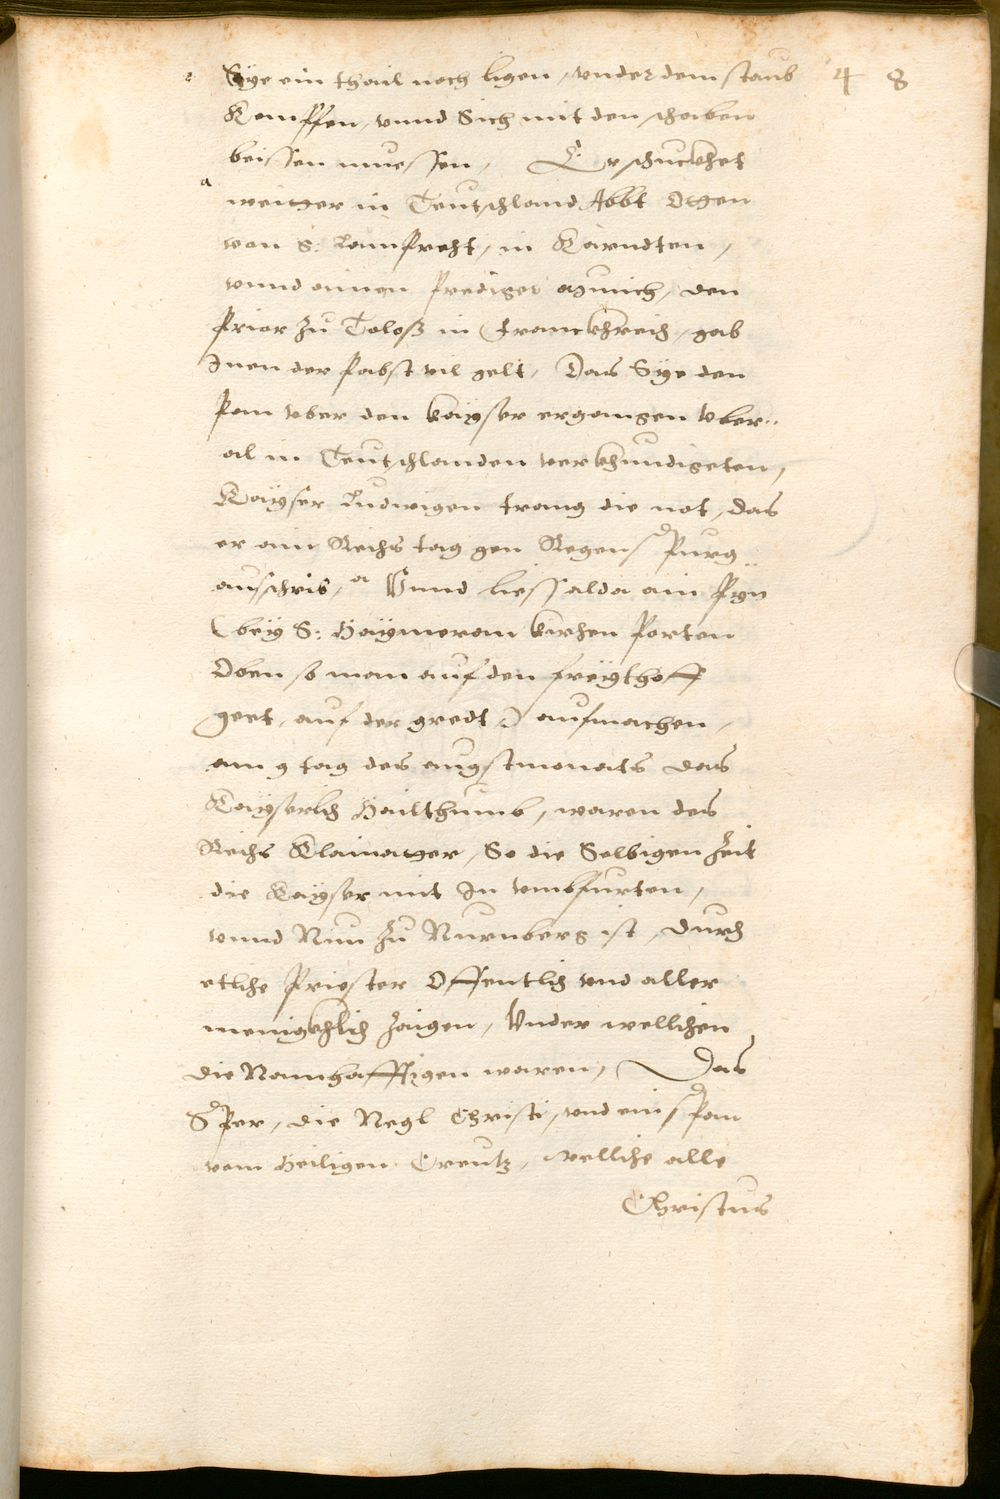 Sÿe ein thail noch ligen, vnder dem staub 48
Kempffen, vnnd Sich mit den schaben
beissen muessen, Er schuckhet
weitter in Teutschland Abbt Otgen
von S: Lamprecht, in Kärndten,
vnnd ainen prediger Münich, den
prior zu Toloß in Franckhreich, gab
Inen der Pabst vil gelt, Das Sÿe den
Pan vber den kaÿser ergangen vber..
al in Teutschlanden verkhundigeten,
Kaÿser Ludwigen trang die not, das
er ain Reichs tag gen Regenspurg
ausschrib, Vnnd liess alda ain
(beÿ S: Haÿmeran kirchen Porten
Oben so man auf den freÿthoff
geet, auf der gredt) aufmachen,
am 9 tag des augstmonats das
Kaÿserlich Hailthumb, waren des
Reichs Klainatter, So die Selbigen Zeit
die Kaÿser mit In vmbfurten,
vnnd Nun Zu Nurnberg ist, durch
etliche Priester Offentlich vnd aller
menigkhlich Zaigen, Vnder wellichen
die Namhafftigen waren, Das
Sper, die Negl Christi, vnd ein span
vom Heiligen Creutz, welliche alle
Christus